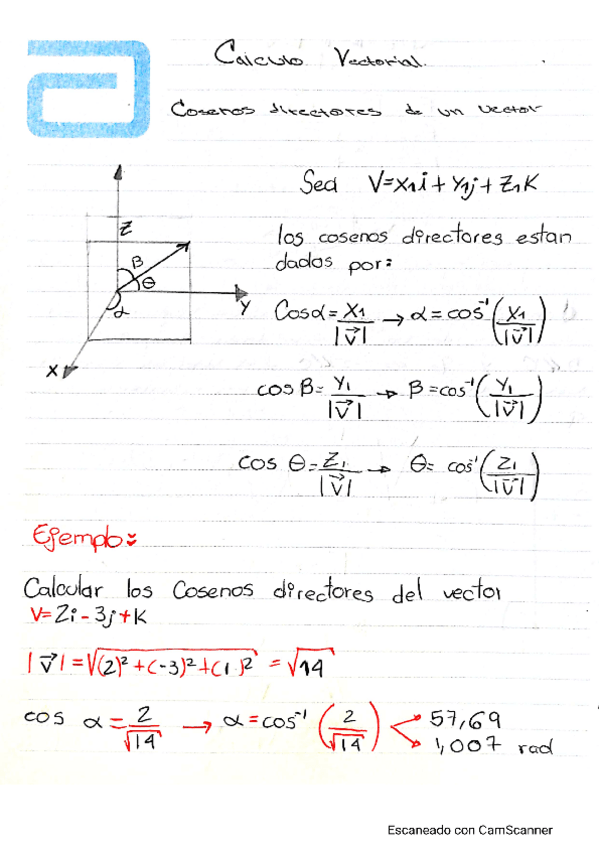 Calculo Vectorial.
Cosenos directores de un vector
Sea V=X1i+Y1j+Z1K
los cosenos directores estan
dados por:
Z
β
θ
α
Y
X
Cosα=X1/|v⃗| → α=cos⁻¹(X1/|v⃗|)
cos β=Y1/|v⃗| → β=cos⁻¹(Y1/|v⃗|)
cos θ=Z1/|v⃗| → θ= cos⁻¹(Z1/|v⃗|)
Ejemplo:
Calcular los Cosenos directores del vector
V=2i-3j+K
|v⃗|=√(2)²+(-3)²+(1)² =√14
cos α=2/√14 → α=cos⁻¹(2/√14) 57,69
1,007 rad
Escaneado con CamScanner